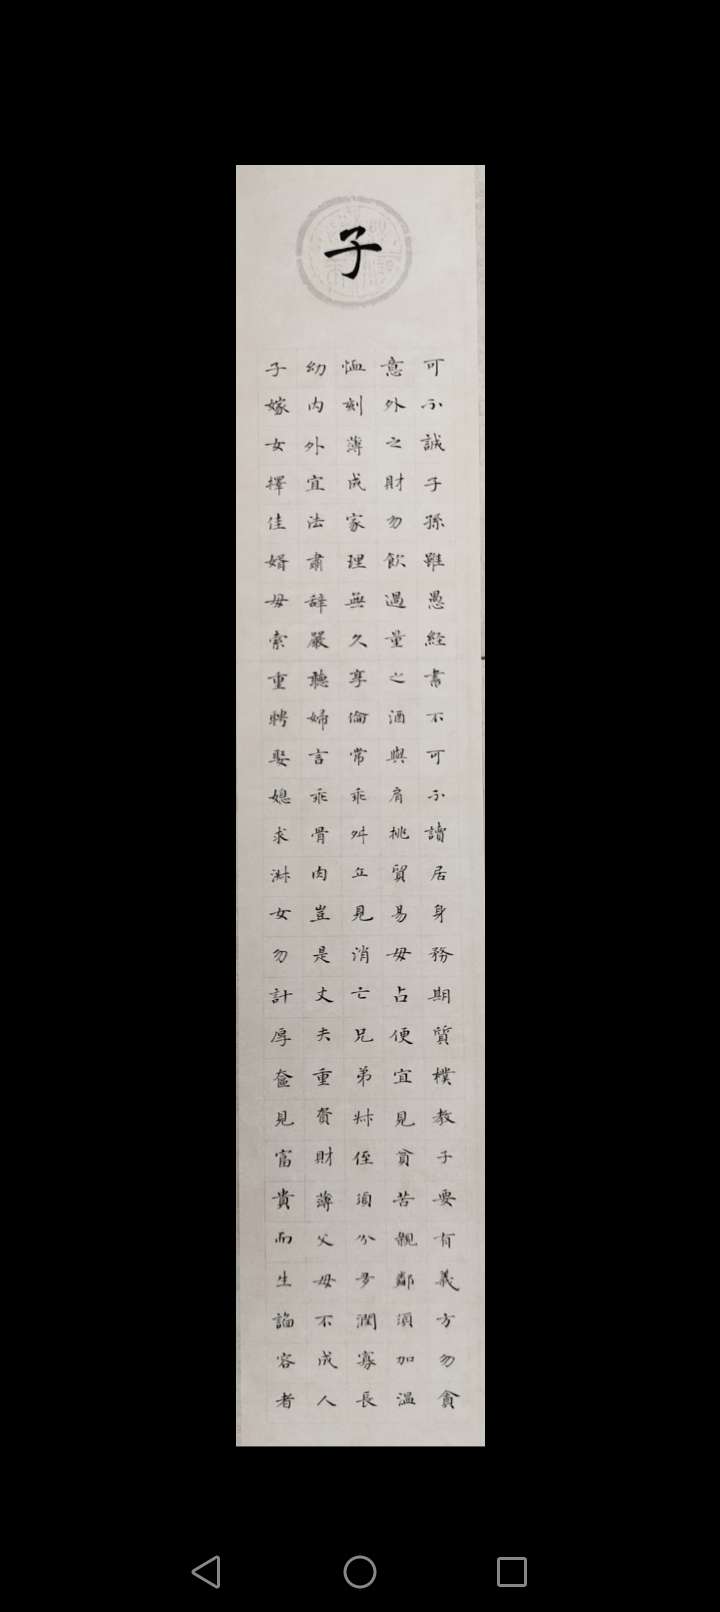 子
可不誠子孫雖愚經書不可不讀居身務期質樸教子要有義方勿貪
意外之財勿飲過量之酒與肩挑貿易毋占便宜見貧苦親鄰須加溫
恤刻薄成家理無久享倫常乖舛立見消亡兄弟叔侄須分多潤寡長
幼內外宜法肅辭嚴聽婦言乖骨肉豈是丈夫重資財薄父母不成人
子嫁女擇佳婿毋索重聘娶媳求淑女勿計厚奩見富貴而生諂容者